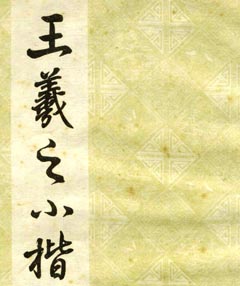 王羲之小楷